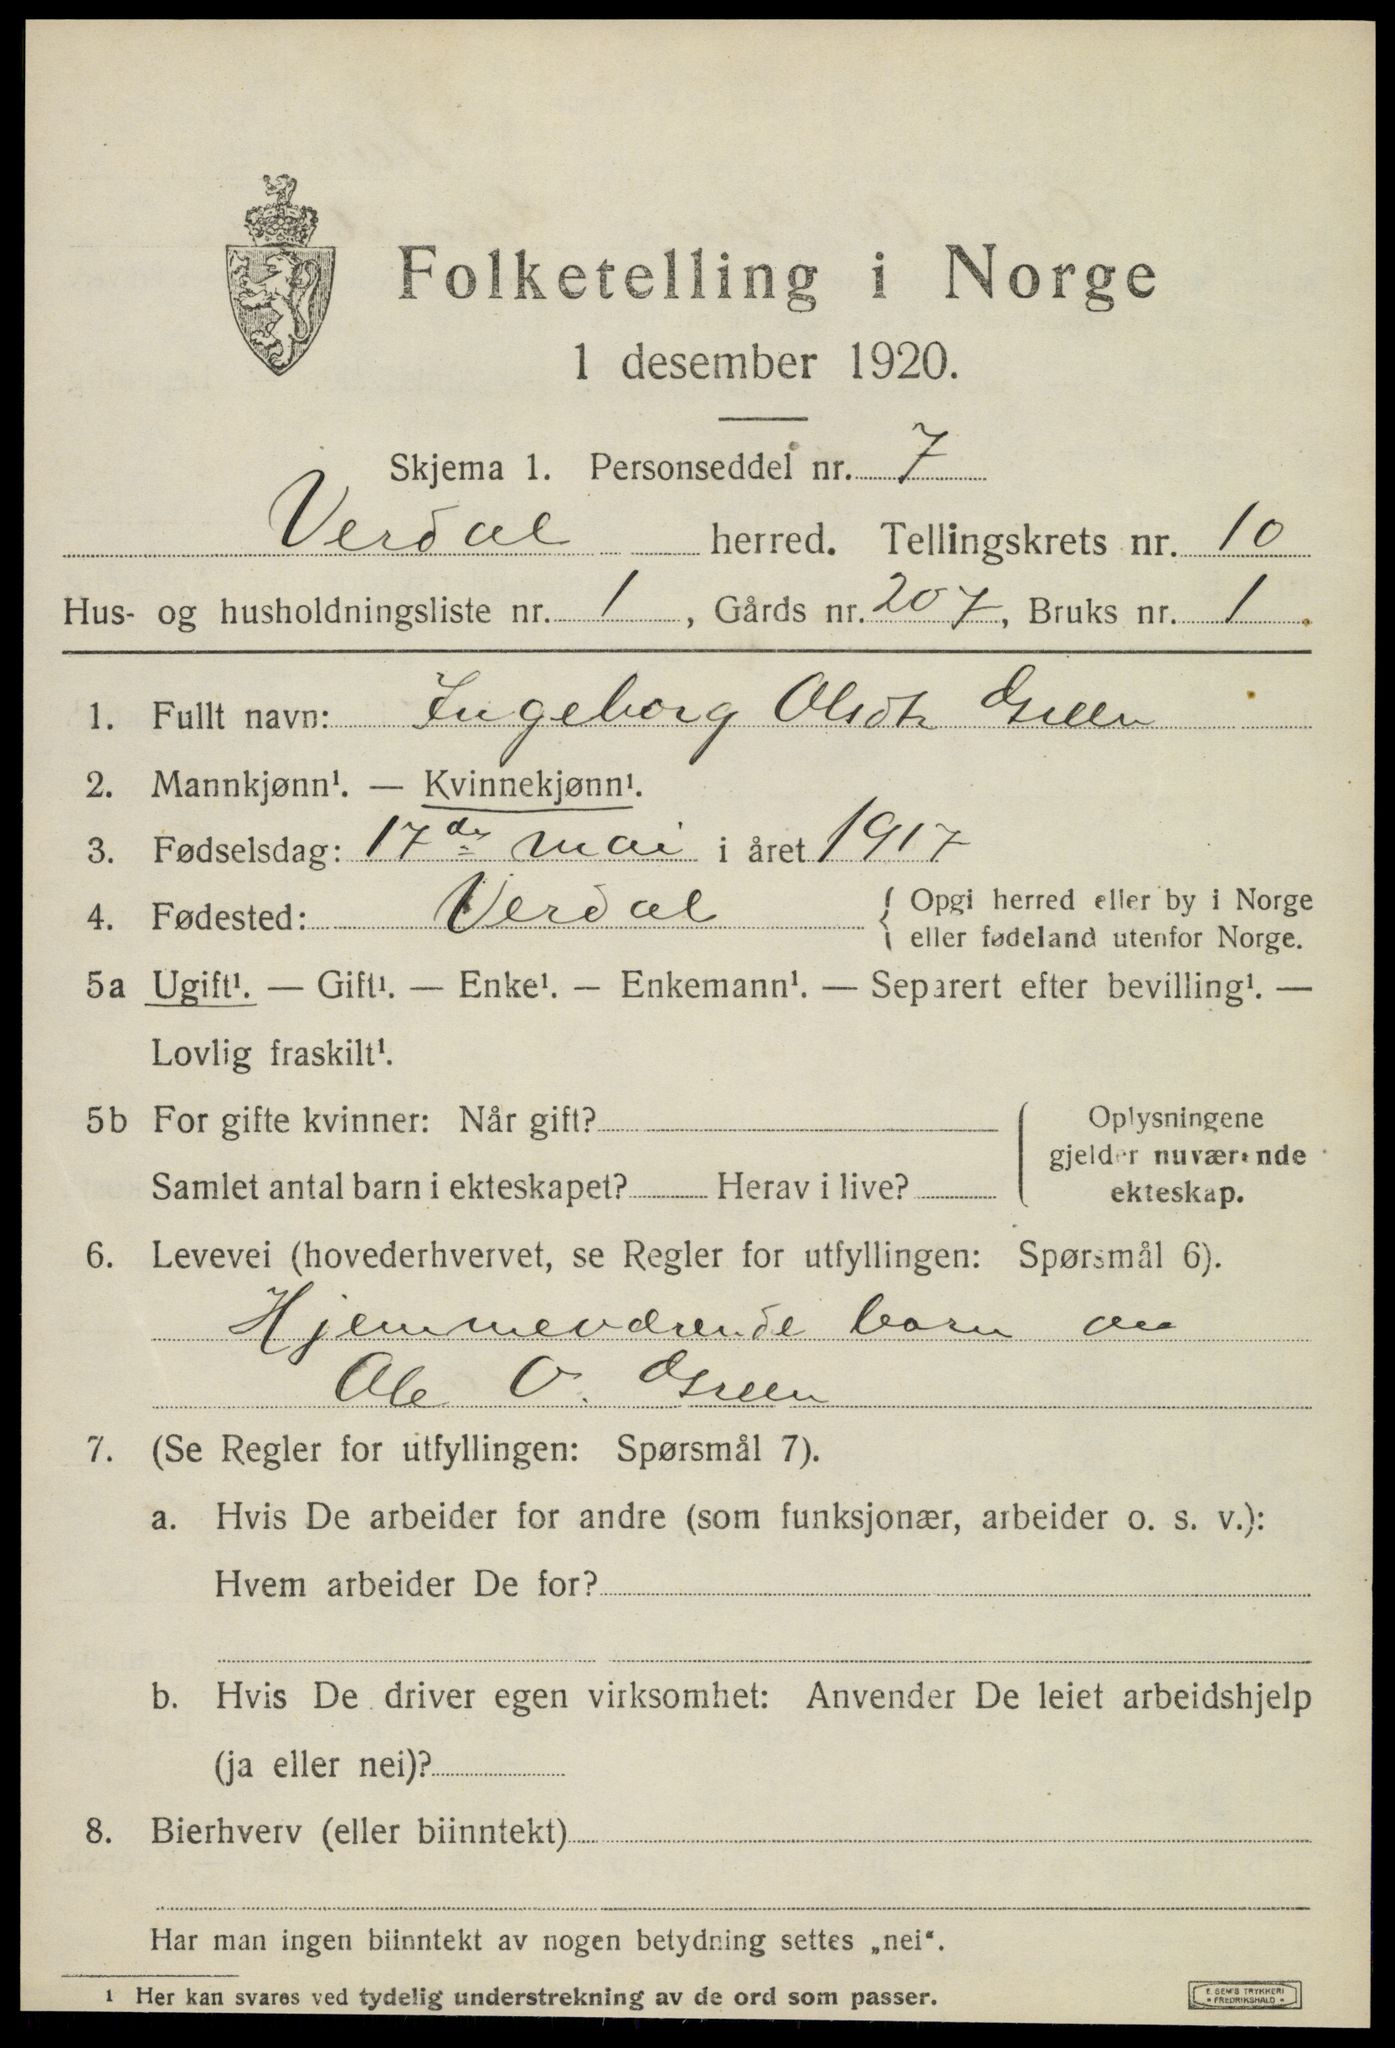 Folketelling i Norge
1 desember 1920.
Skjema 1. Personseddel nr. 7
Verdal herred. Tellingskrets nr. 10
Hus- og husholdningsliste nr. 1, Gårds nr. 207, Bruks nr. 1.
1. Fullt navn: Ingeborg Olsdtr Green
2. Mannkjønn¹. — Kvinnekjønn¹.
3. Fødselsdag: 17de mai i året 1917
4. Fødested: Verdal { Opgi herred eller by i Norge
eller fødeland utenfor Norge.
5a Ugift¹. — Gift¹. — Enke¹. — Enkemann¹. — Separert efter bevilling¹. —
Lovlig fraskilt¹.
5b For gifte kvinner: Når gift? Oplysningene
gjelder nuværende
Samlet antal barn i ekteskapet? Herav i live? ekteskap.
6. Levevei (hovederhvervet, se Regler for utfyllingen: Spørsmål 6).
Hjemmeværende barn av
Ole O. Green
7. (Se Regler for utfyllingen: Spørsmål 7).
a. Hvis De arbeider for andre (som funksjonær, arbeider o. s. v.):
Hvem arbeider De for?
b. Hvis De driver egen virksomhet: Anvender De leiet arbeidshjelp
(ja eller nei)?
8. Bierhverv (eller biinntekt)
Har man ingen biinntekt av nogen betydning settes „nei“.
1 Her kan svares ved tydelig understrekning av de ord som passer.
E. SEM'S TRYKKERI
FREDRIKSHALD